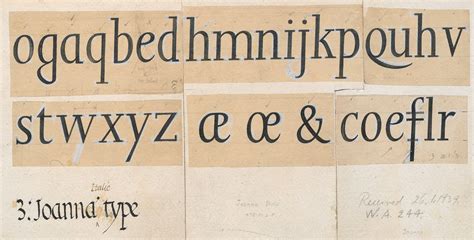 ogaqbedhmnijkpquhv
stwxyz æ œ & coeflr
Italic
3: Joanna type
Received 26.4.1939.
W.A. 244.